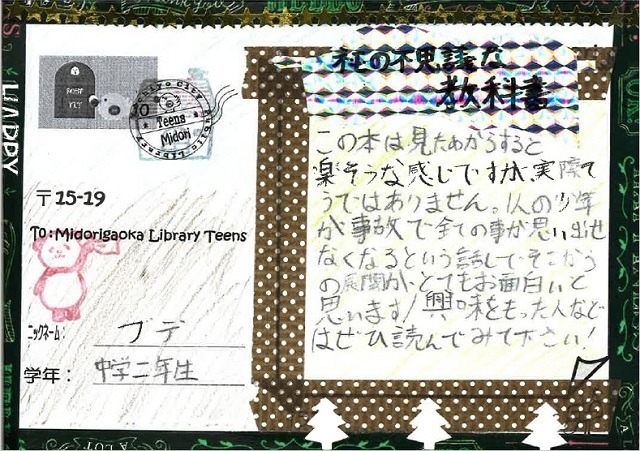 ネモの不思議な
教科書
Teens
Midori
〒15-19
To:Midorigaoka Library Teens
ニックネーム: ブデ
学年: 中学二年生
この本は見ためからすると
楽そうな感じですが、実際そ
うではありません。1人の少年
が事故で全ての事が思い出せ
なくなるという話しで、そこから
の展開が、とてもお面白いと
思います!興味をもった人など
はぜひ読んでみて下さい!